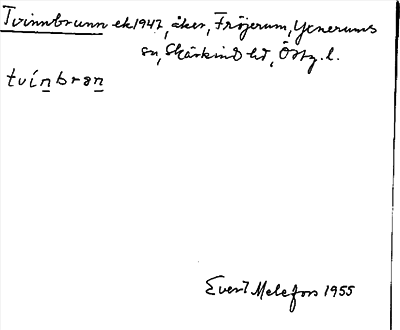 Tvinnbrunn ek 1947, åker, Fröjerum, Yxnerums
sn, Skärkind hd, Östg. l.
tvinbrøn
Evert Melefors 1955